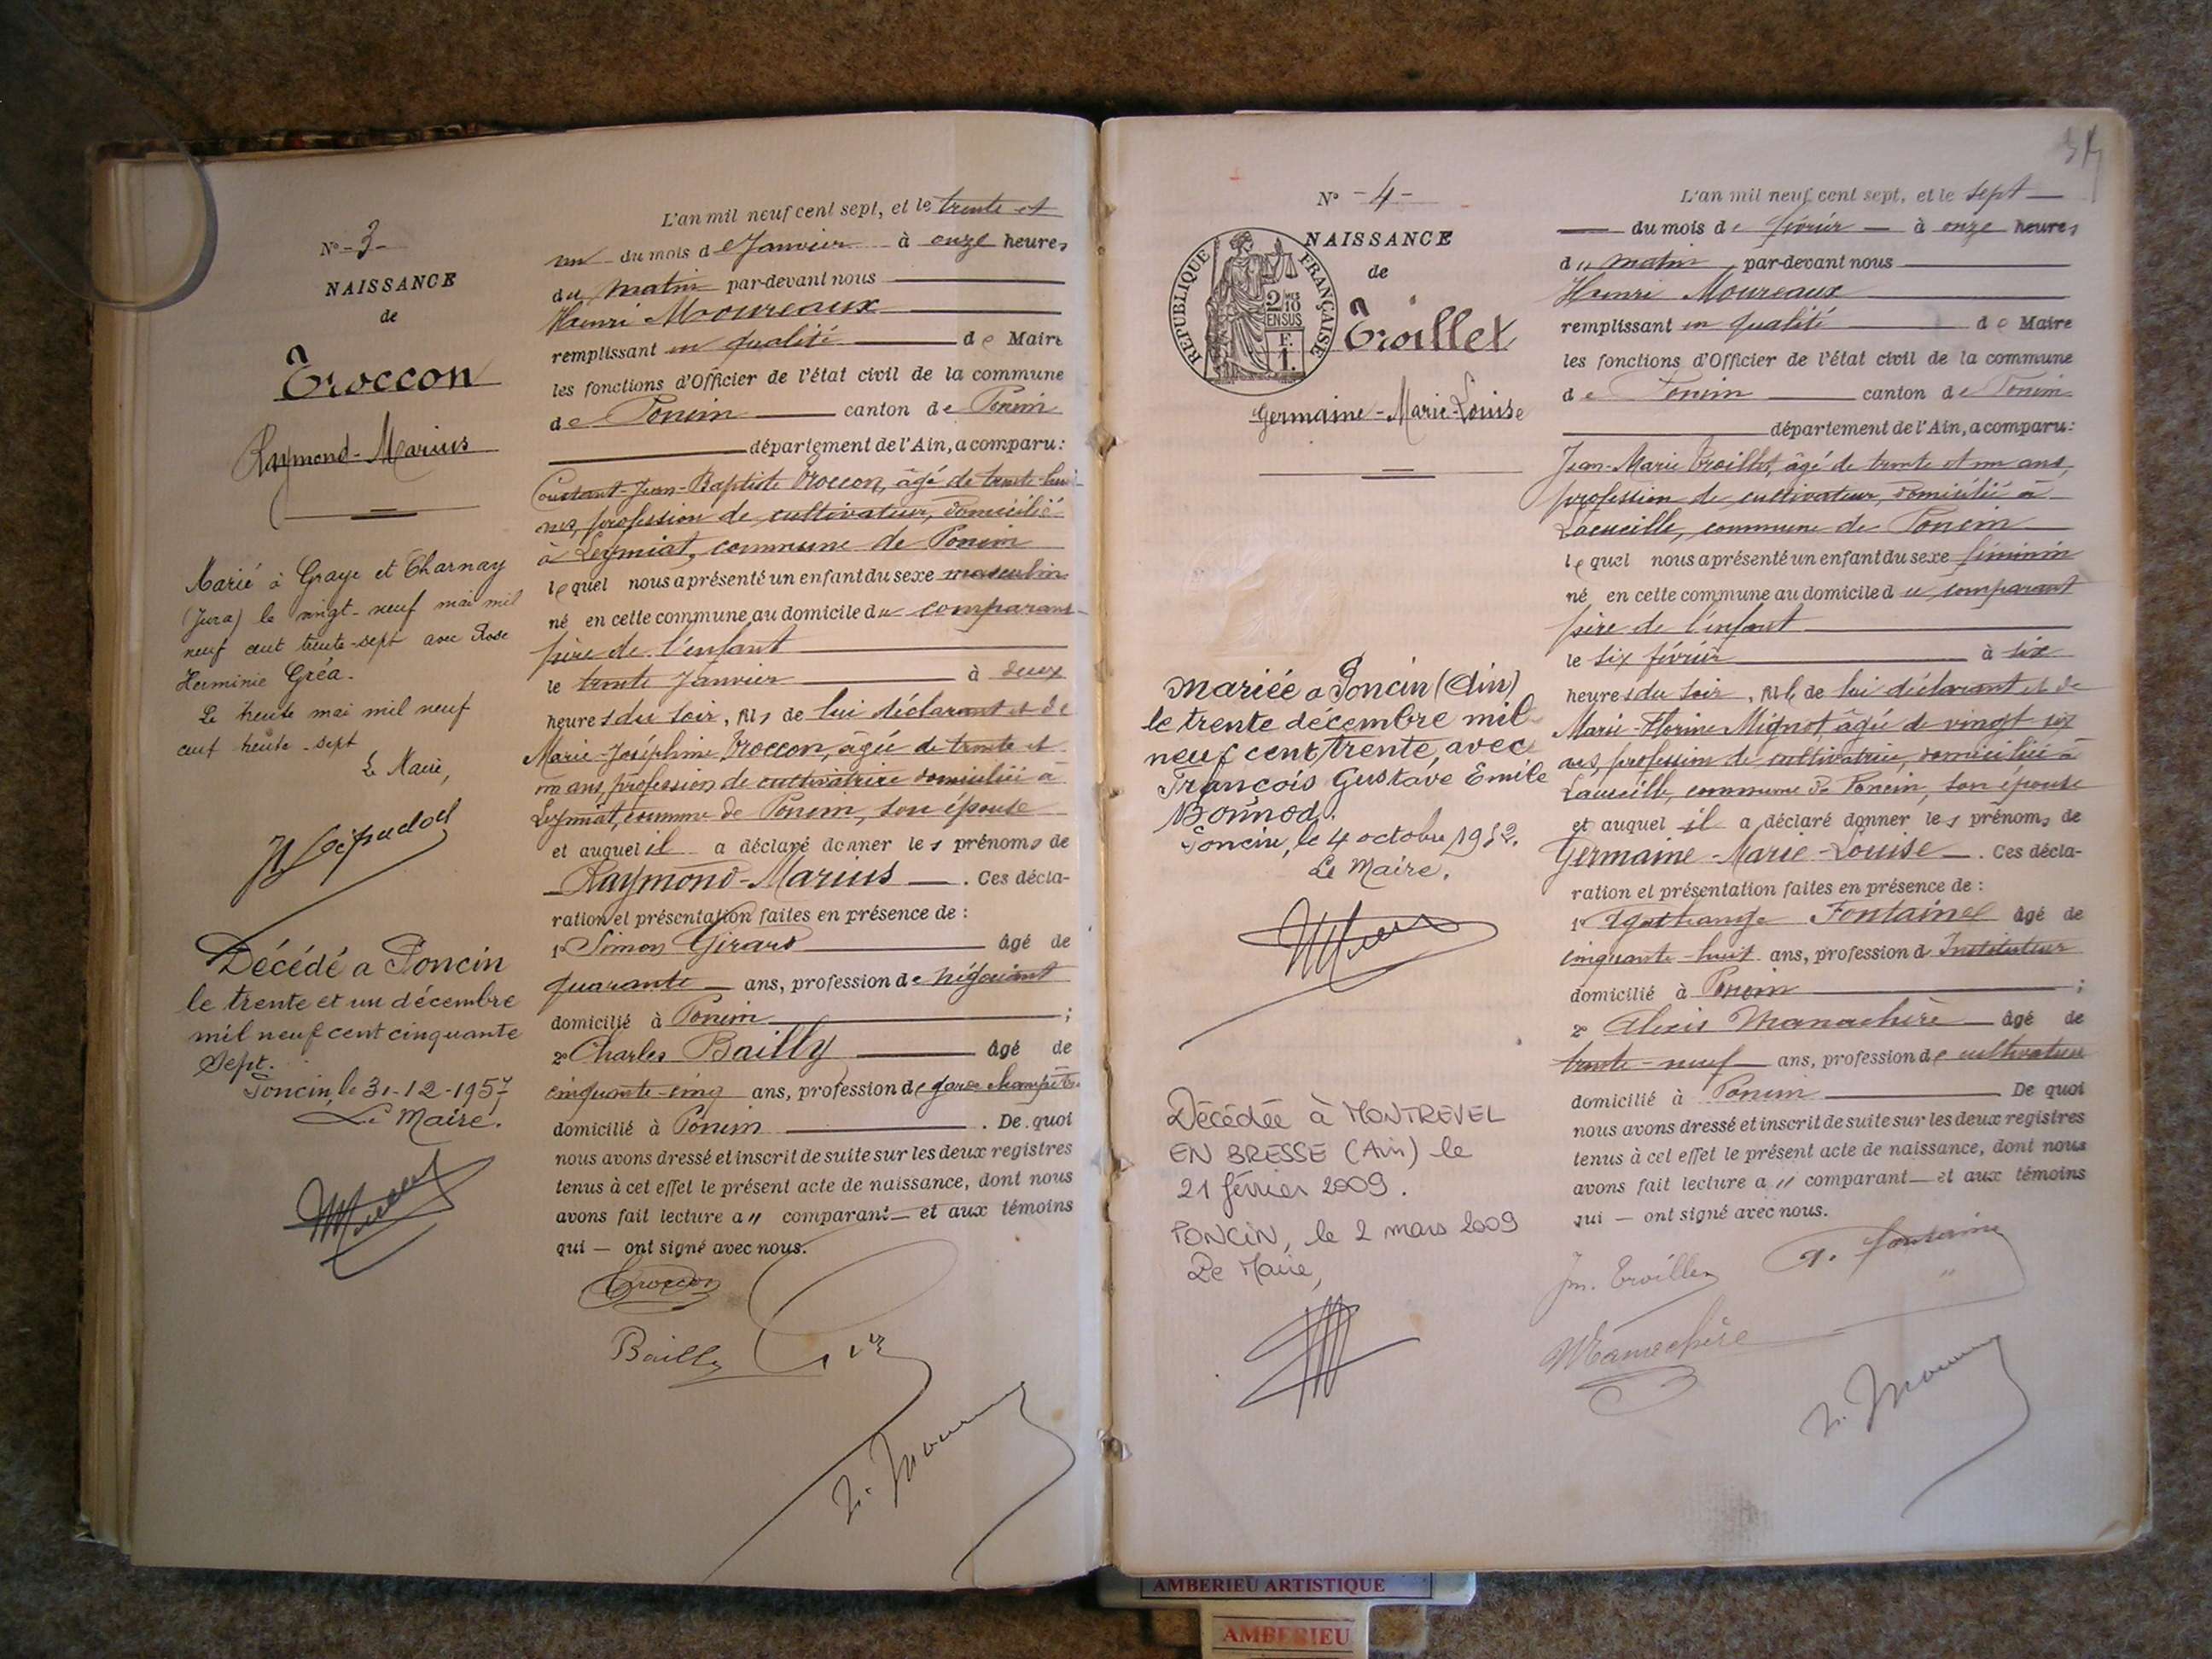 N° - 3 -
NAISSANCE
de
Troccon
Raymond-Marius
Marié à Graye et Charnay
(Jura) le vingt-neuf mai mil
neuf cent trente-sept avec Rose
Herminie Gréa.
Le trente mai mil neuf
cent trente-sept
Le Maire,
Décédé a Poncin
le trente et un décembre
mil neuf cent cinquante
Sept.
Poncin, le 31-12-1957
Le Maire.
L'an mil neuf cent sept, et le trente et
un du mois de Janvier à onze heures
du matin par-devant nous
Henri Moureaux
remplissant en qualité de Maire
les fonctions d'Officier de l'état civil de la commune
de Poncin canton de Poncin
département de l'Ain, a comparu :
Constant-Jean-Baptiste Troccon, âgé de trente-huit
ans, profession de cultivateur, domicilié
à Leymiat, commune de Poncin
lequel nous a présenté un enfant du sexe masculin
né en cette commune au domicile du comparant
père de l'enfant
le trente Janvier à deux
heures du soir, fils de lui déclarant et de
Marie-Joséphine Troccon, âgée de trente et
un ans, profession de cultivatrice domiciliée à
Leymiat, commune de Poncin, son épouse
et auquel il a déclaré donner les prénoms de
Raymond-Marius. Ces décla-
ration et présentation faites en présence de :
1° Simon Girard âgé de
quarante ans, profession de négociant
domicilié à Poncin ;
2° Charles Bailly âgé de
cinquante-cinq ans, profession de garde champêtre
domicilié à Poncin. De quoi
nous avons dressé et inscrit de suite sur les deux registres
tenus à cet effet le présent acte de naissance, dont nous
avons fait lecture au comparant et aux témoins
qui — ont signé avec nous.
Troccon
Bailly
34
N° - 4 -
NAISSANCE
de
REPUBLIQUE FRANÇAISE
2/10 EN SUS
F. 1.
Troillet
Germaine-Marie-Louise
Mariée a Poncin (Ain)
le trente décembre mil
neuf cent trente, avec
François Gustave Emile
Bonnod.
Poncin, le 4 octobre 1952.
Le Maire.
Décédée à MONTREVEL
EN BRESSE (Ain) le
21 février 2009.
PONCIN, le 2 mars 2009
Le Maire,
L'an mil neuf cent sept, et le sept
du mois de février à onze heures
du matin par-devant nous
Henri Moureaux
remplissant en qualité de Maire
les fonctions d'Officier de l'état civil de la commune
de Poncin canton de Poncin
département de l'Ain, a comparu :
Jean-Marie Troillet, âgé de trente et un ans,
profession de cultivateur, domicilié à
Lacueille, commune de Poncin
lequel nous a présenté un enfant du sexe féminin
né en cette commune au domicile du comparant
père de l'enfant
le six février à six
heures du soir, fille de lui déclarant et de
Marie-Florine Mignot, âgée de vingt six
ans, profession de cultivatrice, domiciliée à
Lacueille, commune de Poncin, son épouse
et auquel il a déclaré donner les prénoms de
Germaine-Marie-Louise. Ces décla-
ration et présentation faites en présence de :
1° Fontaine âgé de
cinquante-huit ans, profession d Instituteur
domicilié à Poncin ;
2° Alexis Manachère âgé de
trente-neuf ans, profession de cultivateur
domicilié à Poncin De quoi
nous avons dressé et inscrit de suite sur les deux registres
tenus à cet effet le présent acte de naissance, dont nous
avons fait lecture au comparant et aux témoins
qui — ont signé avec nous.
Jm. Troillet
Fontaine
Manachère
AMBERIEU ARTISTIQUE
AMBERIEU